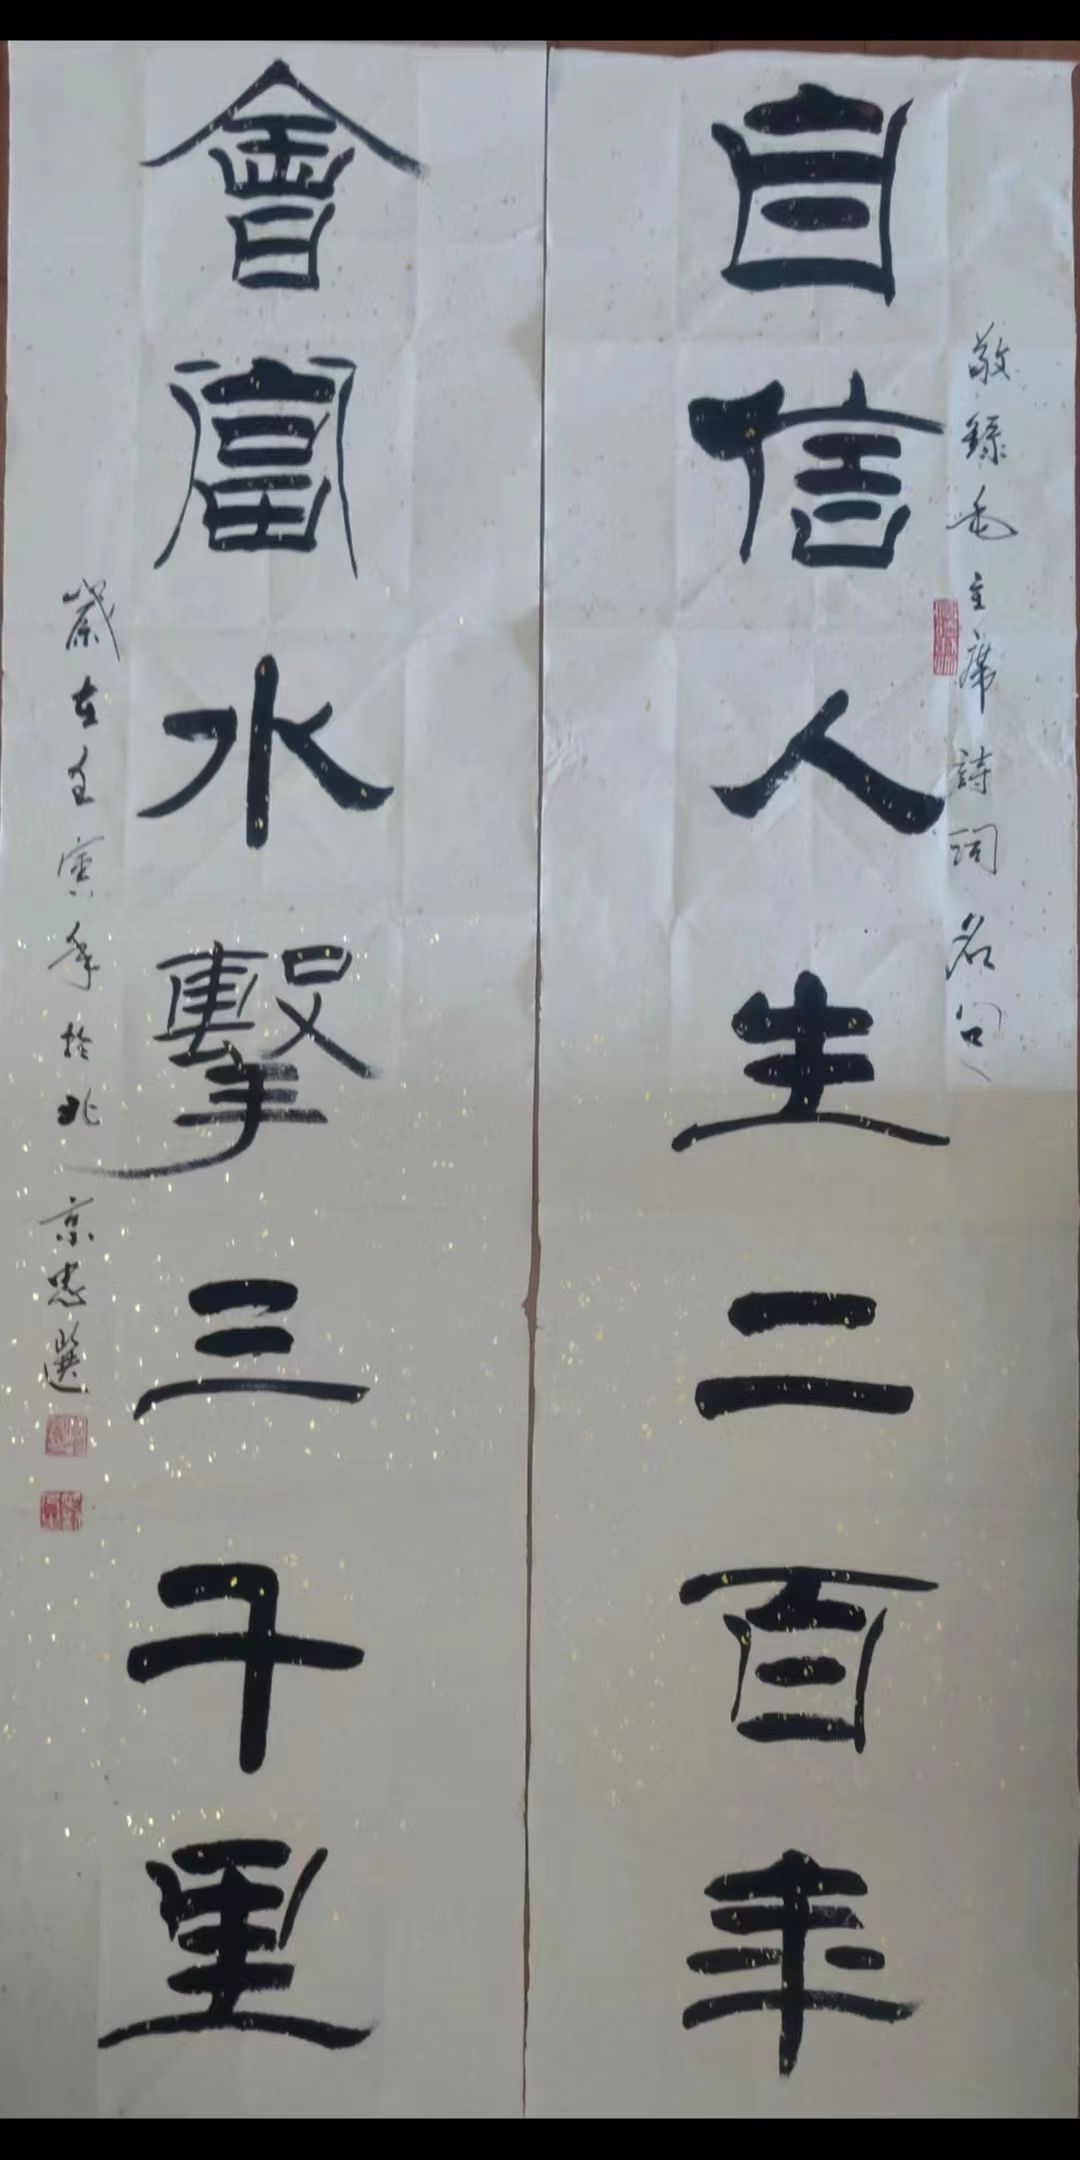 敬錄毛主席詩詞名句
自信人生二百年
會當水擊三千里
歲在壬寅年於北京忠選